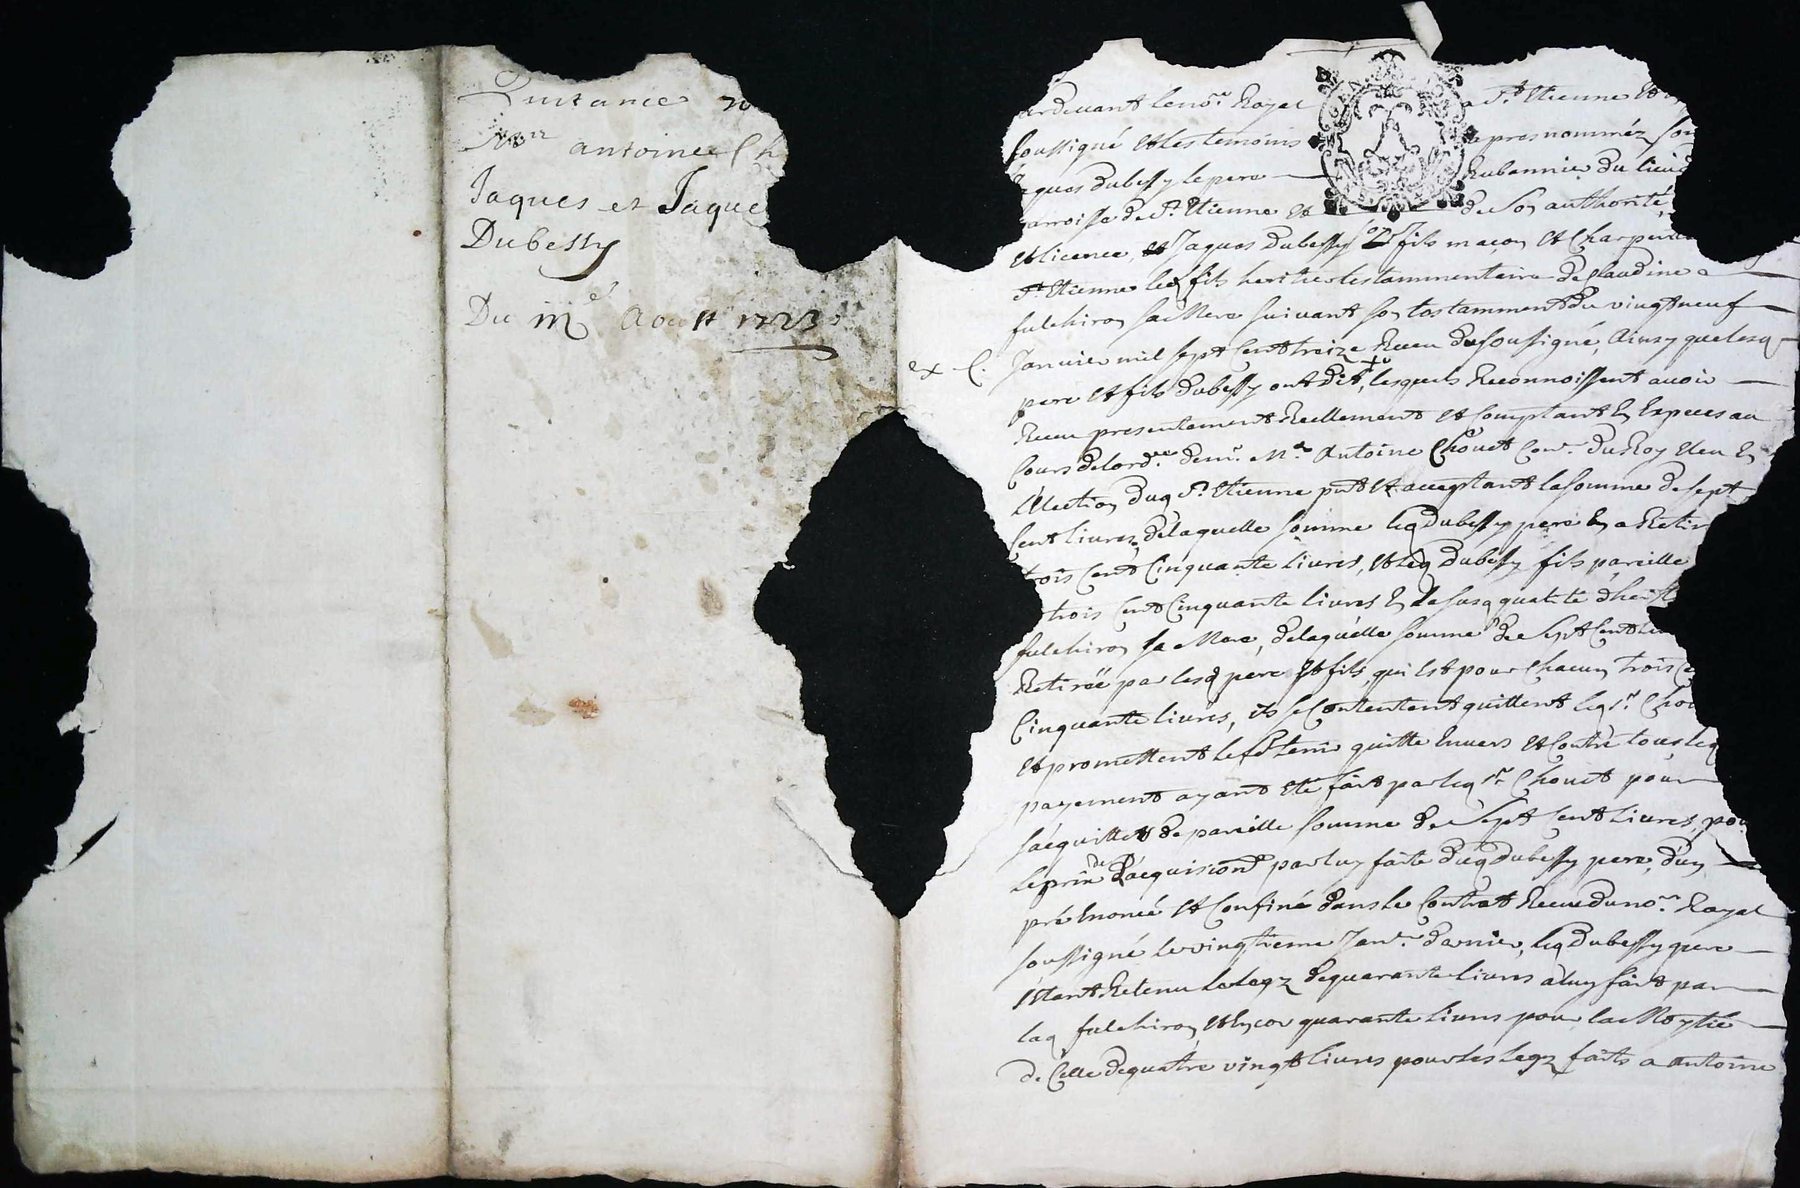 Quitance
Mʳᵉ antoine Ch
Jaques et Jaque
Dubessy
Du Aoust 1723
ex
devant le noʳᵉ Royal a Sᵗ Etienne
soussigné et les temoins pres nommés
Jaques dubessy le pere Rubannier du lieu
parroisse de Sᵗ Etienne et de son authorité,
et licence, et Jaques dubessy fils maçon et Charpentier
Sᵗ Etienne led fils heritier testammentaire de claudine
fulchiron sa Mere suivant son testamment du vingtneuf
Janvier mil sept Cent treize Receu du soussigné, Ainsy que lesd
pere et fils dubessy ont dit, lesquels Reconnoissent avoir
Receu presentement Reellement et Comptant En Especes au
Cours de lordʳᵉ de mʳ Mʳᵉ Antoine Chovet Conʳ du Roy Eleu En
l'Election dud Sᵗ Etienne pnt et acceptant la somme de sept
Cent livres, de laquelle somme led dubessy pere En a Retir
trois Cent Cinquante livres, et led dubessy fils pareille
trois Cent Cinquante livres En la susd qualité dherit
fulchiron sa Mere, de laquelle somme de Sept Cent
Retirée par lesd pere et fils, qui Est pour chacun trois
Cinquante livres, ils se Contentent quittent led sʳ Cho
et promettent le tenir quitte Envers et Contre tous led
payement ayant Eté fait par led sʳ Chovet pour
sacquitter de pareille somme de Sept Cent livres, pour
le prix de par luy faite dud Dubessy pere, d'un
pré Enoncé et Confiné dans le Contrat Receu du noʳᵉ Royal
soussigné le vingtieme Janʳ dernier, led Dubessy pere
Etant Retenu le legz de quarante livres a luy fait par
lad fulchiron, et quarante livres pour la Moytié
de Celle de quatre vingt livres pour les legz faits a antoine